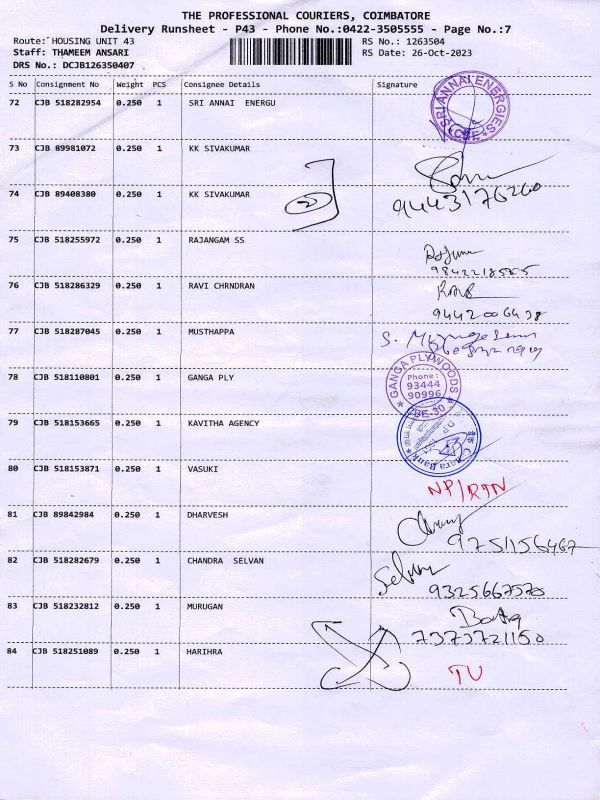 THE PROFESSIONAL COURIERS, COIMBATORE
Delivery Runsheet - P43 - Phone No.:0422-3505555 - Page No.:7
Route: HOUSING UNIT 43 RS No.: 1263504
Staff: THAMEEM ANSARI RS Date: 26-Oct-2023
DRS No.: DCJB126350407
S No Consignment No Weight PCS Consignee Details Signature
72 CJB 518282954 0.250 1 SRI ANNAI ENERGU
SRI ANNAI ENERGIES * CBE *
73 CJB 89981072 0.250 1 KK SIVAKUMAR
74 CJB 89408380 0.250 1 KK SIVAKUMAR 2 9443176260
75 CJB 518255972 0.250 1 RAJANGAM SS
76 CJB 518286329 0.250 1 RAVI CHRNDRAN
9442006438
77 CJB 518287045 0.250 1 MUSTHAPPA
78 CJB 518110801 0.250 1 GANGA PLY
GANGA PLYWOODS
Phone :
93444
90996
* CBE-30 *
79 CJB 518153665 0.250 1 KAVITHA AGENCY
Canara Bank
80 CJB 518153871 0.250 1 VASUKI NP/RTN
81 CJB 89842984 0.250 1 DHARVESH
9751156467
82 CJB 518282679 0.250 1 CHANDRA SELVAN Selvan
9325667570
83 CJB 518232812 0.250 1 MURUGAN
7373721150
84 CJB 518251089 0.250 1 HARIHRA TU